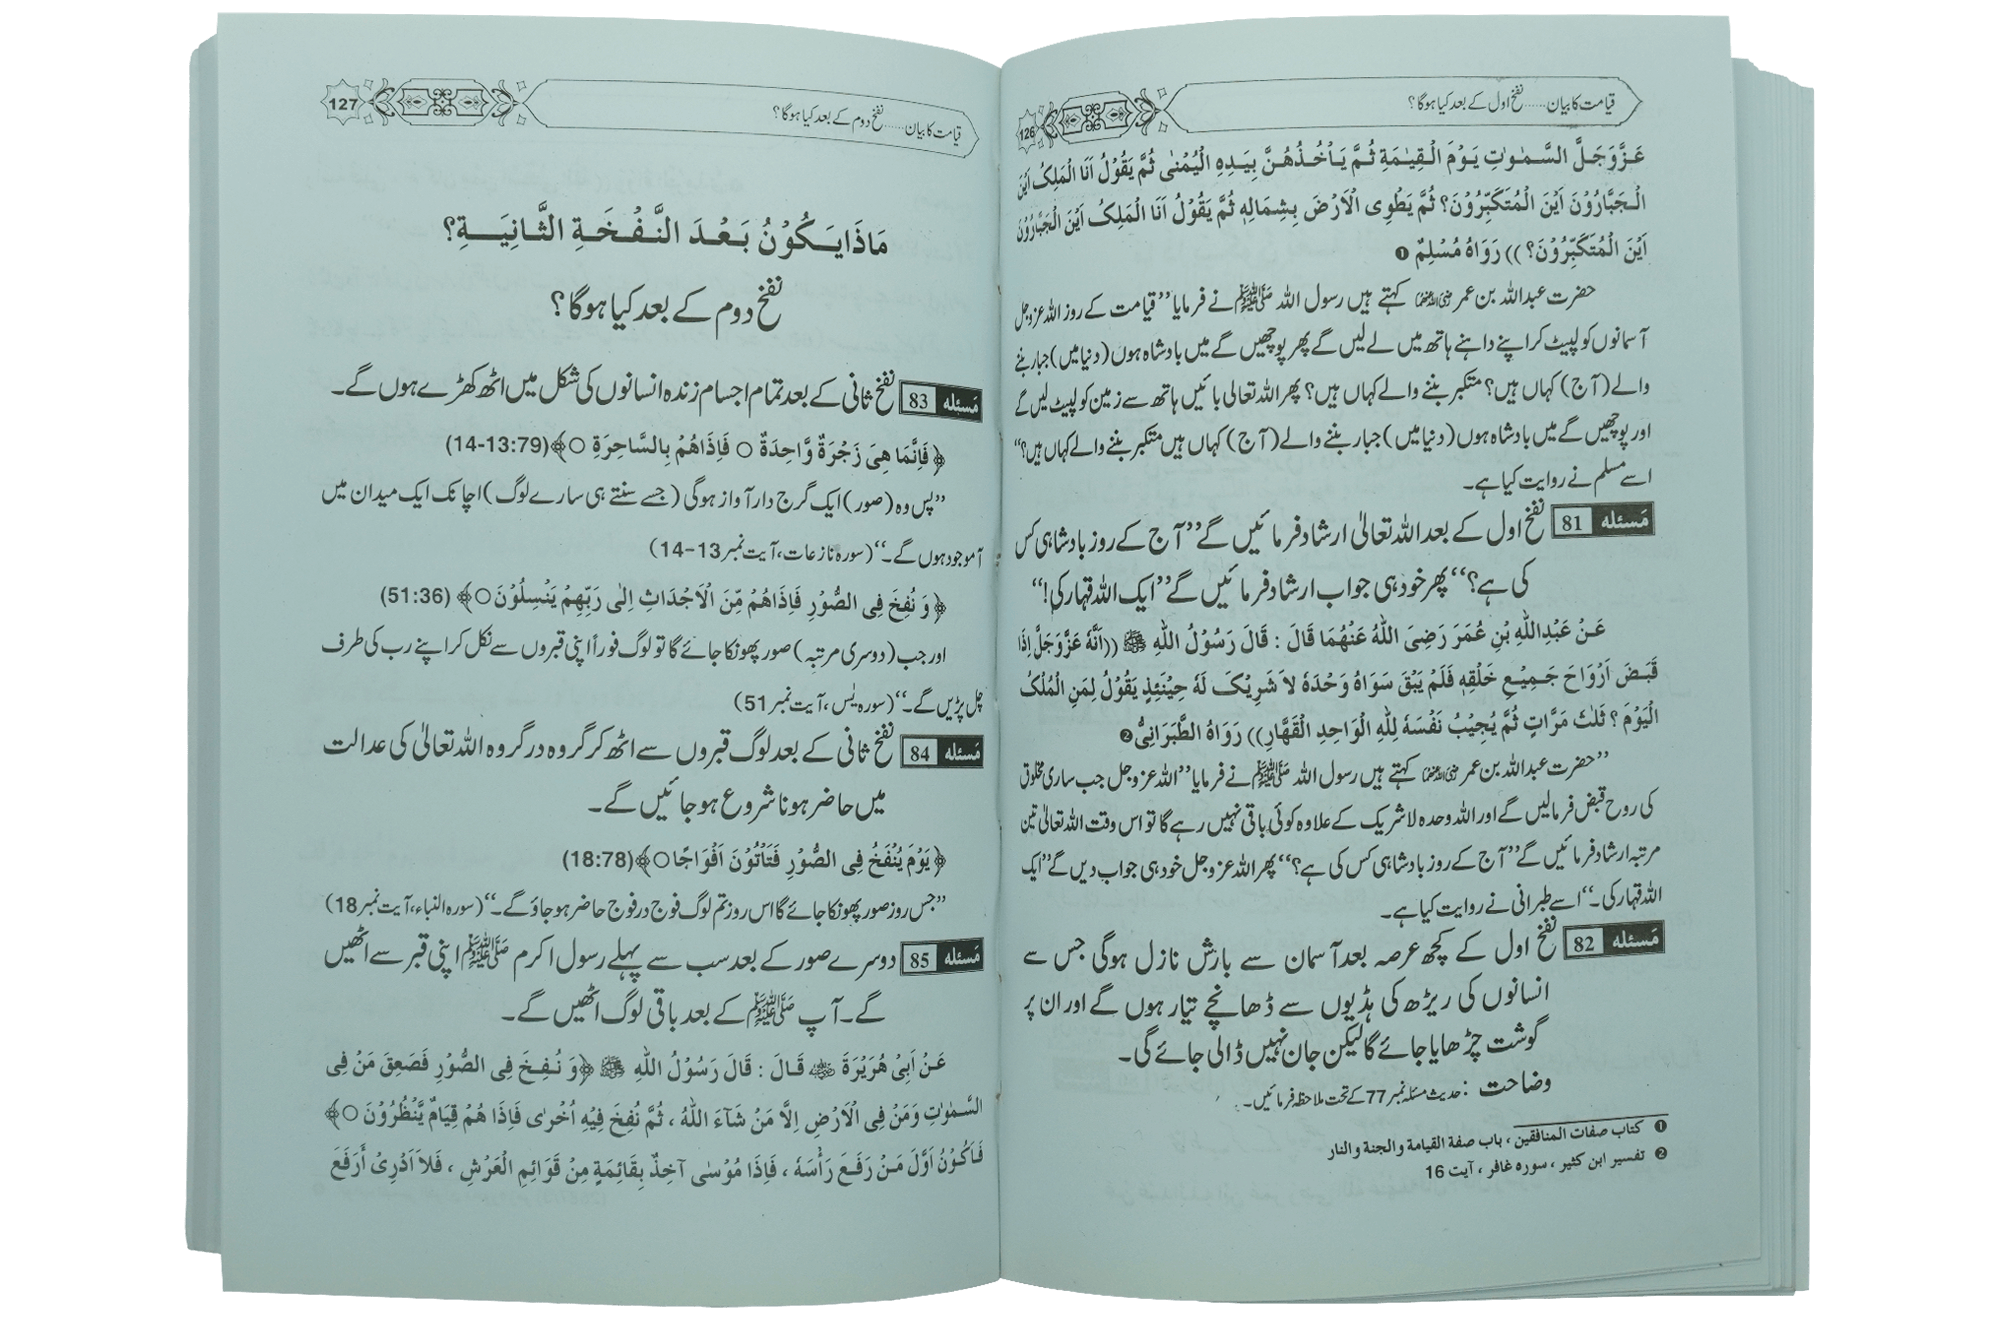 قیامت کا بیان ...... نفخ اول کے بعد کیا ہوگا؟
126
عَزَّوَجَلَّ السَّمٰوٰتِ یَوْمَ الْقِیٰمَةِ ثُمَّ یَاْخُذُهُنَّ بِیَدِهِ الْیُمْنٰی ثُمَّ یَقُوْلُ اَنَا الْمَلِکُ اَیْنَ
الْجَبَّارُوْنَ اَیْنَ الْمُتَکَبِّرُوْنَ؟ ثُمَّ یَطْوِی الْاَرْضَ بِشِمَالِهٖ ثُمَّ یَقُوْلُ اَنَا الْمَلِکُ اَیْنَ الْجَبَّارُوْنَ
اَیْنَ الْمُتَکَبِّرُوْنَ؟ )) رَوَاهُ مُسْلِمٌ ❶
حضرت عبداللہ بن عمر رضی اللہ عنہما کہتے ہیں رسول اللہ ﷺ نے فرمایا ”قیامت کے روز اللہ عزوجل
آسمانوں کو لپیٹ کر اپنے داہنے ہاتھ میں لے لیں گے پھر پوچھیں گے میں بادشاہ ہوں (دنیا میں) جبار بننے
والے (آج) کہاں ہیں؟ متکبر بننے والے کہاں ہیں؟ پھر اللہ تعالیٰ بائیں ہاتھ سے زمین کو لپیٹ لیں گے
اور پوچھیں گے میں بادشاہ ہوں (دنیا میں) جبار بننے والے (آج) کہاں ہیں متکبر بننے والے کہاں ہیں؟“
اسے مسلم نے روایت کیا ہے۔
مَسئله 81 نفخ اول کے بعد اللہ تعالیٰ ارشاد فرمائیں گے ”آج کے روز بادشاہی کس
کی ہے؟“ پھر خود ہی جواب ارشاد فرمائیں گے ”ایک اللہ قہار کی!“
عَنْ عَبْدِاللّٰهِ بْنِ عُمَرَ رَضِیَ اللّٰهُ عَنْهُمَا قَالَ : قَالَ رَسُوْلُ اللّٰهِ ﷺ ((اَنَّهٗ عَزَّوَجَلَّ اِذَا
قَبَضَ اَرْوَاحَ جَمِیْعِ خَلْقِهٖ فَلَمْ یَبْقَ سَوَاهُ وَحْدَهٗ لاَ شَرِیْکَ لَهٗ حِیْنَئِذٍ یَقُوْلُ لِمَنِ الْمُلْکُ
الْیَوْمَ ؟ ثَلٰثَ مَرَّاتٍ ثُمَّ یُجِیْبُ نَفْسَهٗ لِلّٰهِ الْوَاحِدِ الْقَهَّارِ)) رَوَاهُ الطَّبَرَانِیُّ ❷
”حضرت عبداللہ بن عمر رضی اللہ عنہما کہتے ہیں رسول اللہ ﷺ نے فرمایا ”اللہ عزوجل جب ساری مخلوق
کی روح قبض فرمالیں گے اور اللہ وحدہ لاشریک کے علاوہ کوئی باقی نہیں رہے گا تو اس وقت اللہ تعالیٰ تین
مرتبہ ارشاد فرمائیں گے ”آج کے روز بادشاہی کس کی ہے؟“ پھر اللہ عزوجل خود ہی جواب دیں گے ”ایک
اللہ قہار کی۔“ اسے طبرانی نے روایت کیا ہے۔
مَسئله 82 نفخ اول کے کچھ عرصہ بعد آسمان سے بارش نازل ہوگی جس سے
انسانوں کی ریڑھ کی ہڈیوں سے ڈھانچے تیار ہوں گے اور ان پر
گوشت چڑھایا جائے گا لیکن جان نہیں ڈالی جائے گی۔
وضاحت : حدیث مسئلہ نمبر 77 کے تحت ملاحظہ فرمائیں۔
❶ کتاب صفات المنافقین ، باب صفة القیامة والجنة والنار
❷ تفسیر ابن کثیر ، سورہ غافر ، آیت 16
127
قیامت کا بیان ...... نفخ دوم کے بعد کیا ہوگا؟
مَاذَا یَکُوْنُ بَعْدَ النَّفْخَةِ الثَّانِیَةِ؟
نفخ دوم کے بعد کیا ہوگا؟
مَسئله 83 نفخ ثانی کے بعد تمام اجسام زندہ انسانوں کی شکل میں اٹھ کھڑے ہوں گے۔
﴿ فَاِنَّمَا هِیَ زَجْرَةٌ وَّاحِدَةٌ ○ فَاِذَاهُمْ بِالسَّاهِرَةِ ○ ﴾(14-13:79)
”پس وہ (صور) ایک گرج دار آواز ہوگی (جسے سنتے ہی سارے لوگ) اچانک ایک میدان میں
آموجود ہوں گے۔“ (سورہ نازعات، آیت نمبر 13-14)
﴿ وَ نُفِخَ فِی الصُّوْرِ فَاِذَاهُمْ مِّنَ الْاَجْدَاثِ اِلٰی رَبِّهِمْ یَنْسِلُوْنَ○ ﴾ (51:36)
اور جب (دوسری مرتبہ) صور پھونکا جائے گا تو لوگ فوراً اپنی قبروں سے نکل کر اپنے رب کی طرف
چل پڑیں گے۔“ (سورہ یٰس ، آیت نمبر 51)
مَسئله 84 نفخ ثانی کے بعد لوگ قبروں سے اٹھ کر گروہ در گروہ اللہ تعالیٰ کی عدالت
میں حاضر ہونا شروع ہو جائیں گے۔
﴿ یَوْمَ یُنْفَخُ فِی الصُّوْرِ فَتَاْتُوْنَ اَفْوَاجًا○ ﴾(18:78)
”جس روز صور پھونکا جائے گا اس روز تم لوگ فوج در فوج حاضر ہو جاؤ گے۔“ (سورہ النباء، آیت نمبر 18)
مَسئله 85 دوسرے صور کے بعد سب سے پہلے رسول اکرم ﷺ اپنی قبر سے اٹھیں
گے۔ آپ ﷺ کے بعد باقی لوگ اٹھیں گے۔
عَنْ اَبِیْ هُرَیْرَةَ رضی اللہ عنہ قَالَ : قَالَ رَسُوْلُ اللّٰهِ ﷺ ﴿وَ نُفِخَ فِی الصُّوْرِ فَصَعِقَ مَنْ فِی
السَّمٰوٰتِ وَمَنْ فِی الْاَرْضِ اِلَّا مَنْ شَآءَ اللّٰهُ ، ثُمَّ نُفِخَ فِیْهِ اُخْرٰی فَاِذَا هُمْ قِیَامٌ یَّنْظُرُوْنَ ○﴾
فَاَکُوْنُ اَوَّلَ مَنْ رَفَعَ رَأْسَهٗ ، فَاِذَا مُوْسٰی آخِذٌ بِقَائِمَةٍ مِنْ قَوَائِمِ الْعَرْشِ ، فَلاَ اَدْرِیْ أَرَفَعَ